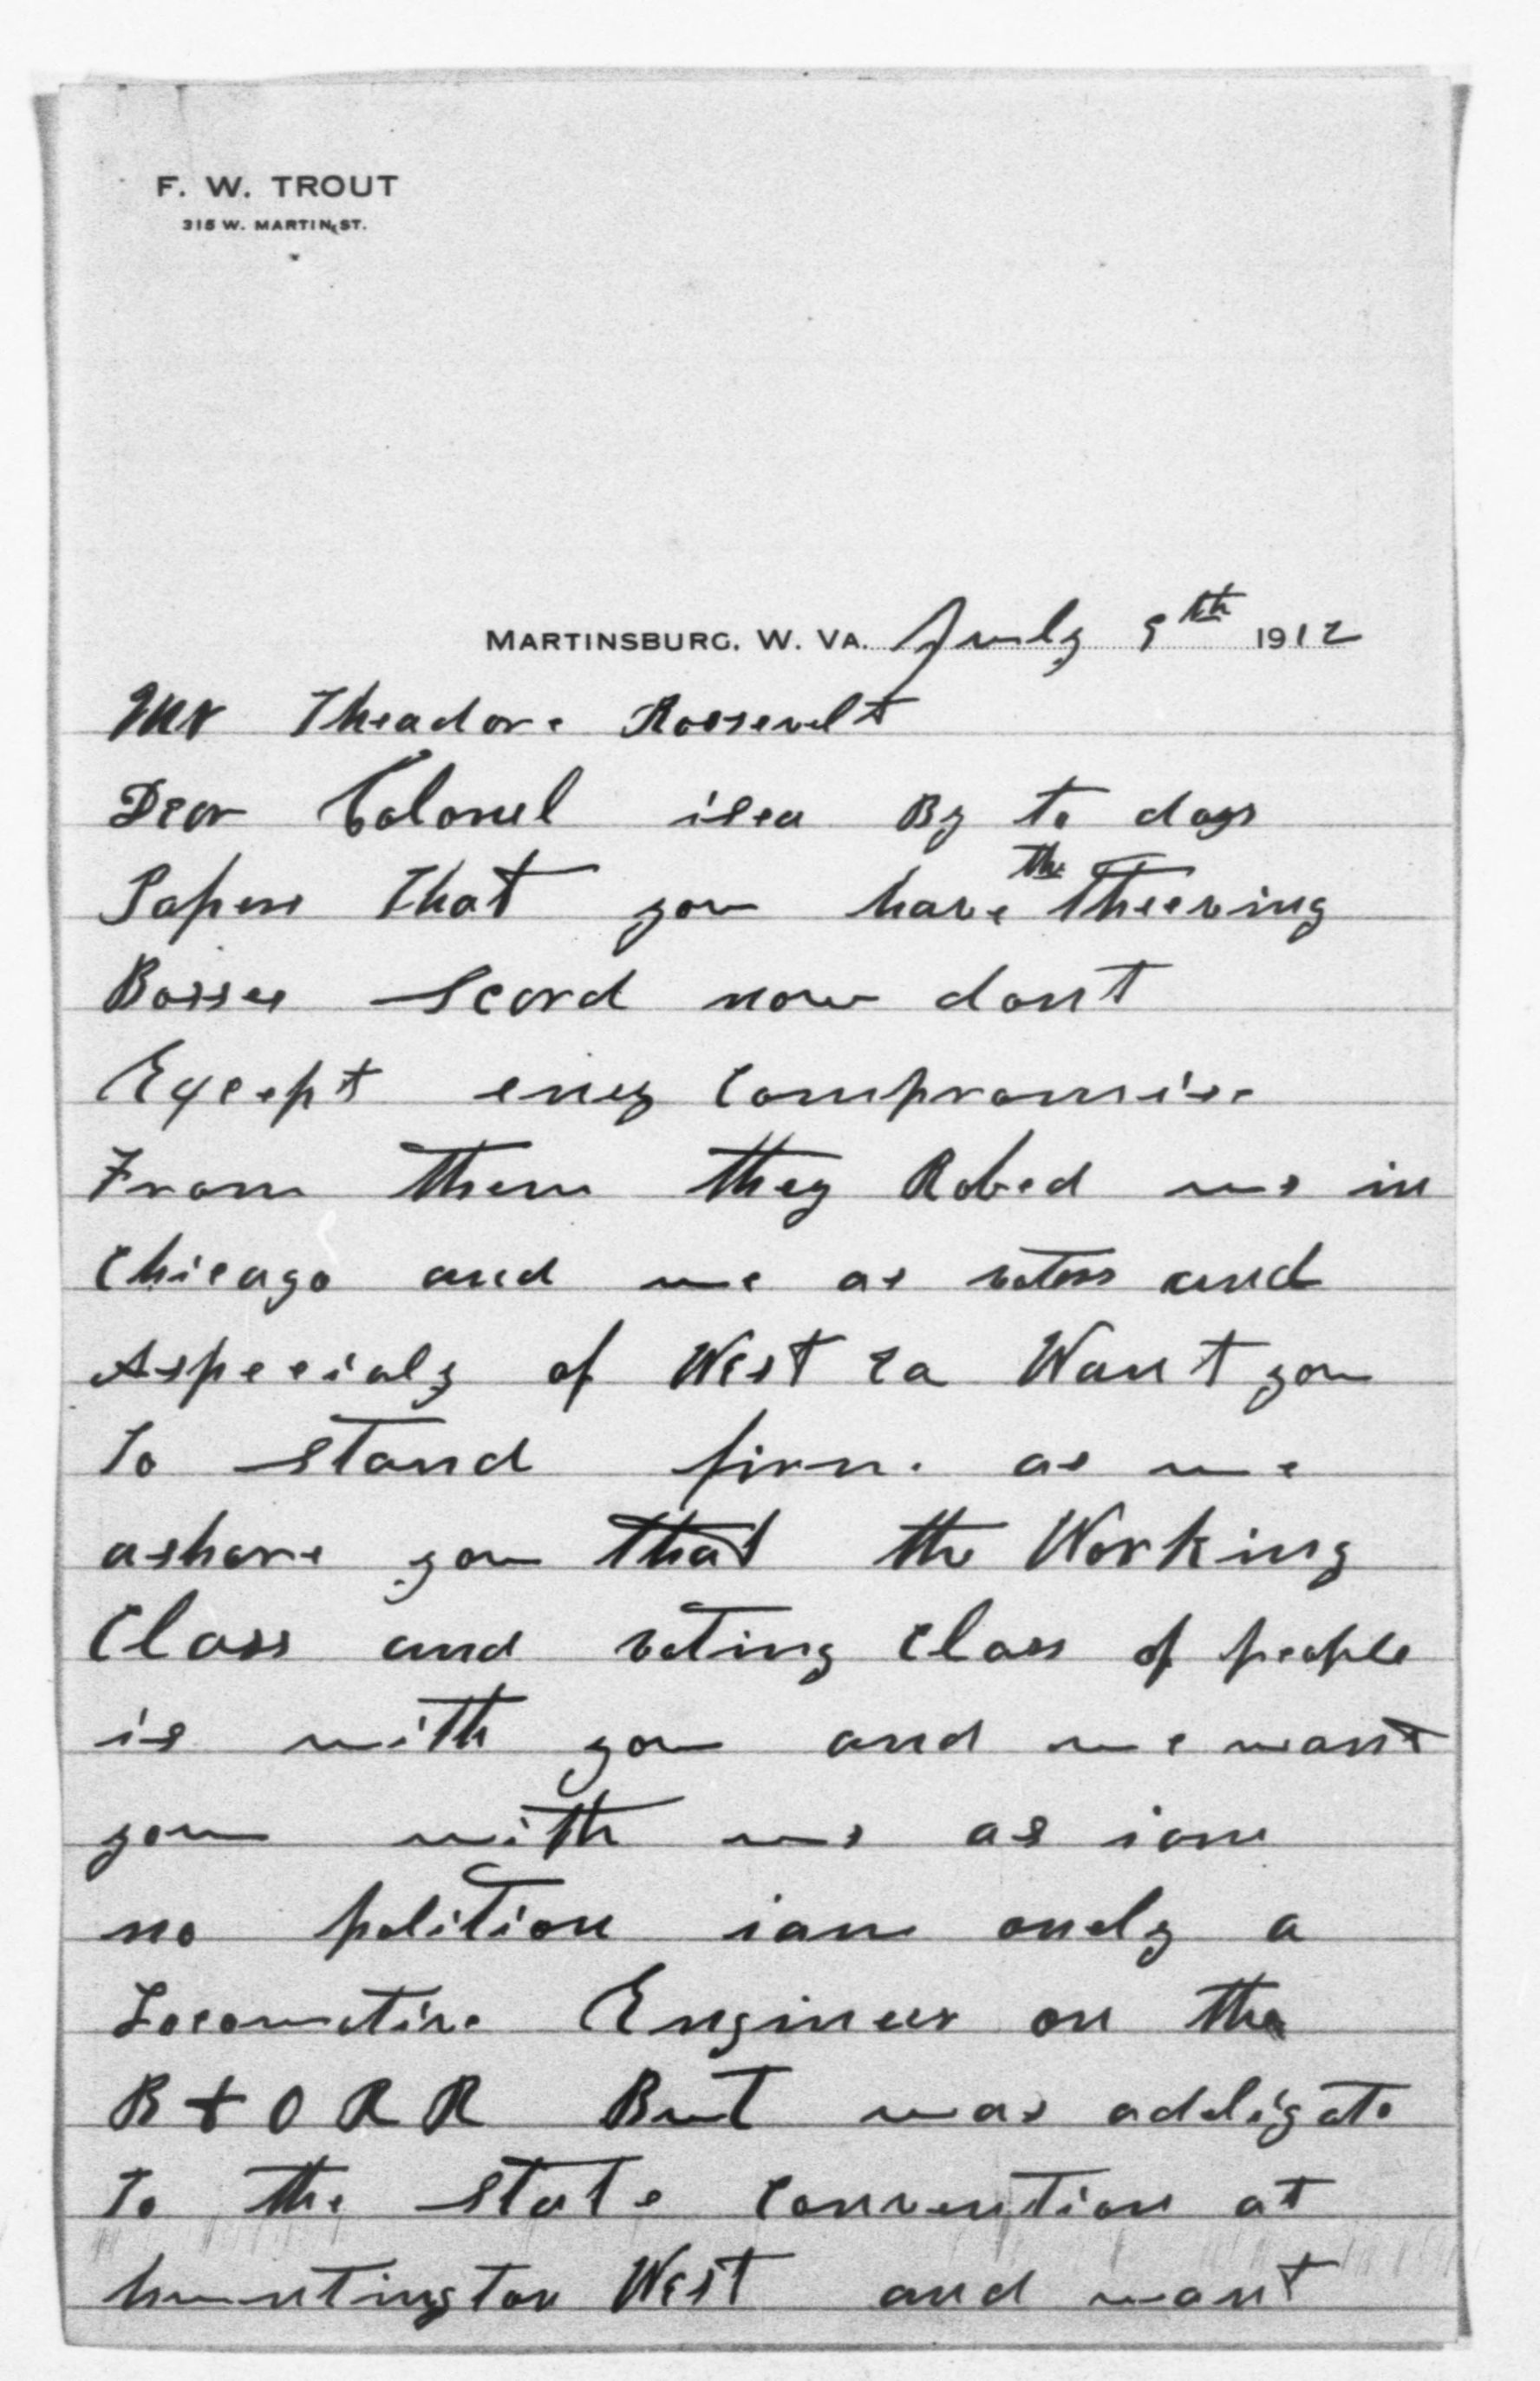 F. W. TROUT
315 W. MARTIN ST.
MARTINSBURG, W. VA. July 9th 1912
Mr Theadore Roosevelt
Dear Colonel isea By to days
Papers that you have the Theeving
Bosses Scard now dont
Except eney Compromise
From them they Robed us in
Chicago and we as voters and
Aspecialy of West va Want you
to stand firm. as we
ashore you that the Working
Class and voting Class of people
is with you and we want
you with us as iam
no polition iam onely a
Locomotive Engineer on the
B & O R R But was addligate
to the state Convention at
huntington West and want